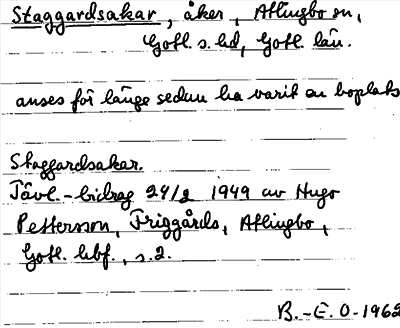 Staggardsakar, åker, Atlingbo sn,
Gotl. s. hd, Gotl. län.
anses för länge sedan ha varit en boplats
Staggardsakar.
Tävl.-bidrag 24/2 1949 av Hugo
Pettersson, Friggårds, Atlingbo,
Gotl. hbf., s. 2.
B.-E. O-1962